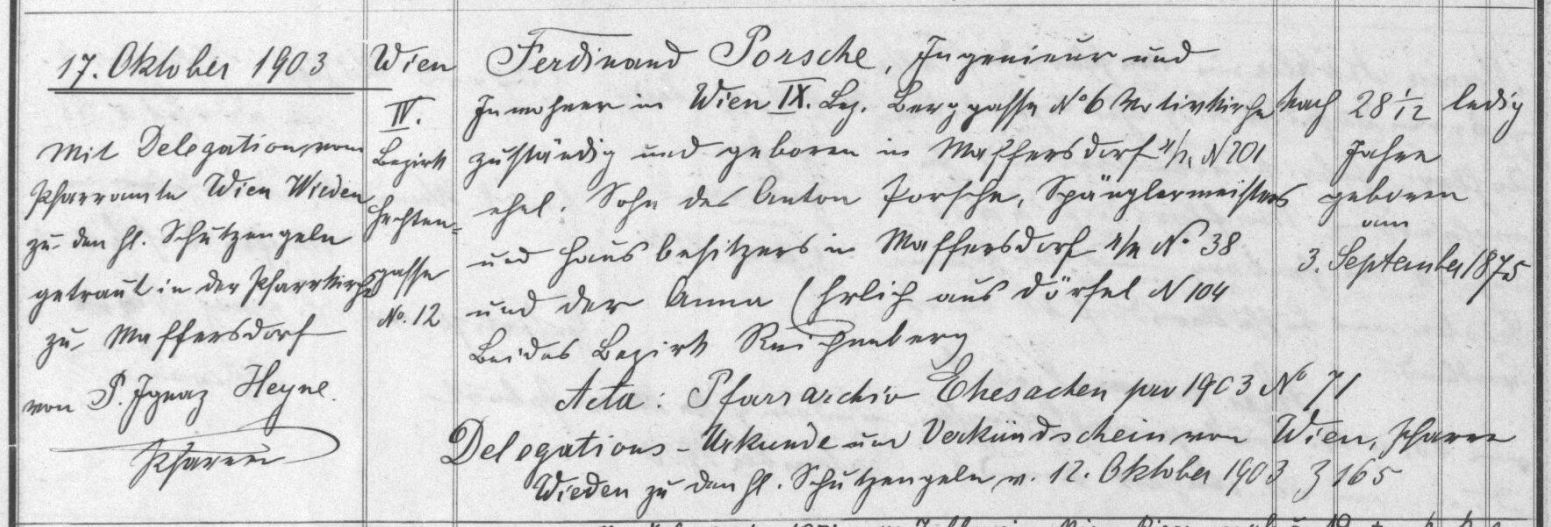 17. Oktober 1903
Mit Delegation vom
Pfarramte Wien Wieden
zu den hl. Schutzengeln
getraut in der Pfarrkirche
zu Maffersdorf
von P. Ignaz Heyne.
Pfarrer
Wien
IV.
Bezirk
gasse
No. 12
Ferdinand Porsche, Ingenieur und
Inwohner in Wien IX. Bez. Berggasse No 6 Votivkirche
zuständig und geboren in Maffersdorf N 201
ehel. Sohn des Anton Porsche, Spänglermeisters
und Hausbesitzers in Maffersdorf No. 38
und der Anna Ehrlich aus Dörfel N 104
Beides Bezirk Reichenberg
Acta: Pfarrarchiv Ehesachen pro 1903 No 71
Delegations-Urkunde und Verkündschein von Wien, Pfarre
Wieden zu den hl. Schutzengeln v. 12. Oktober 1903 Z 165
kath
28 1/12
Jahre
geboren
am
3. September 1875
ledig